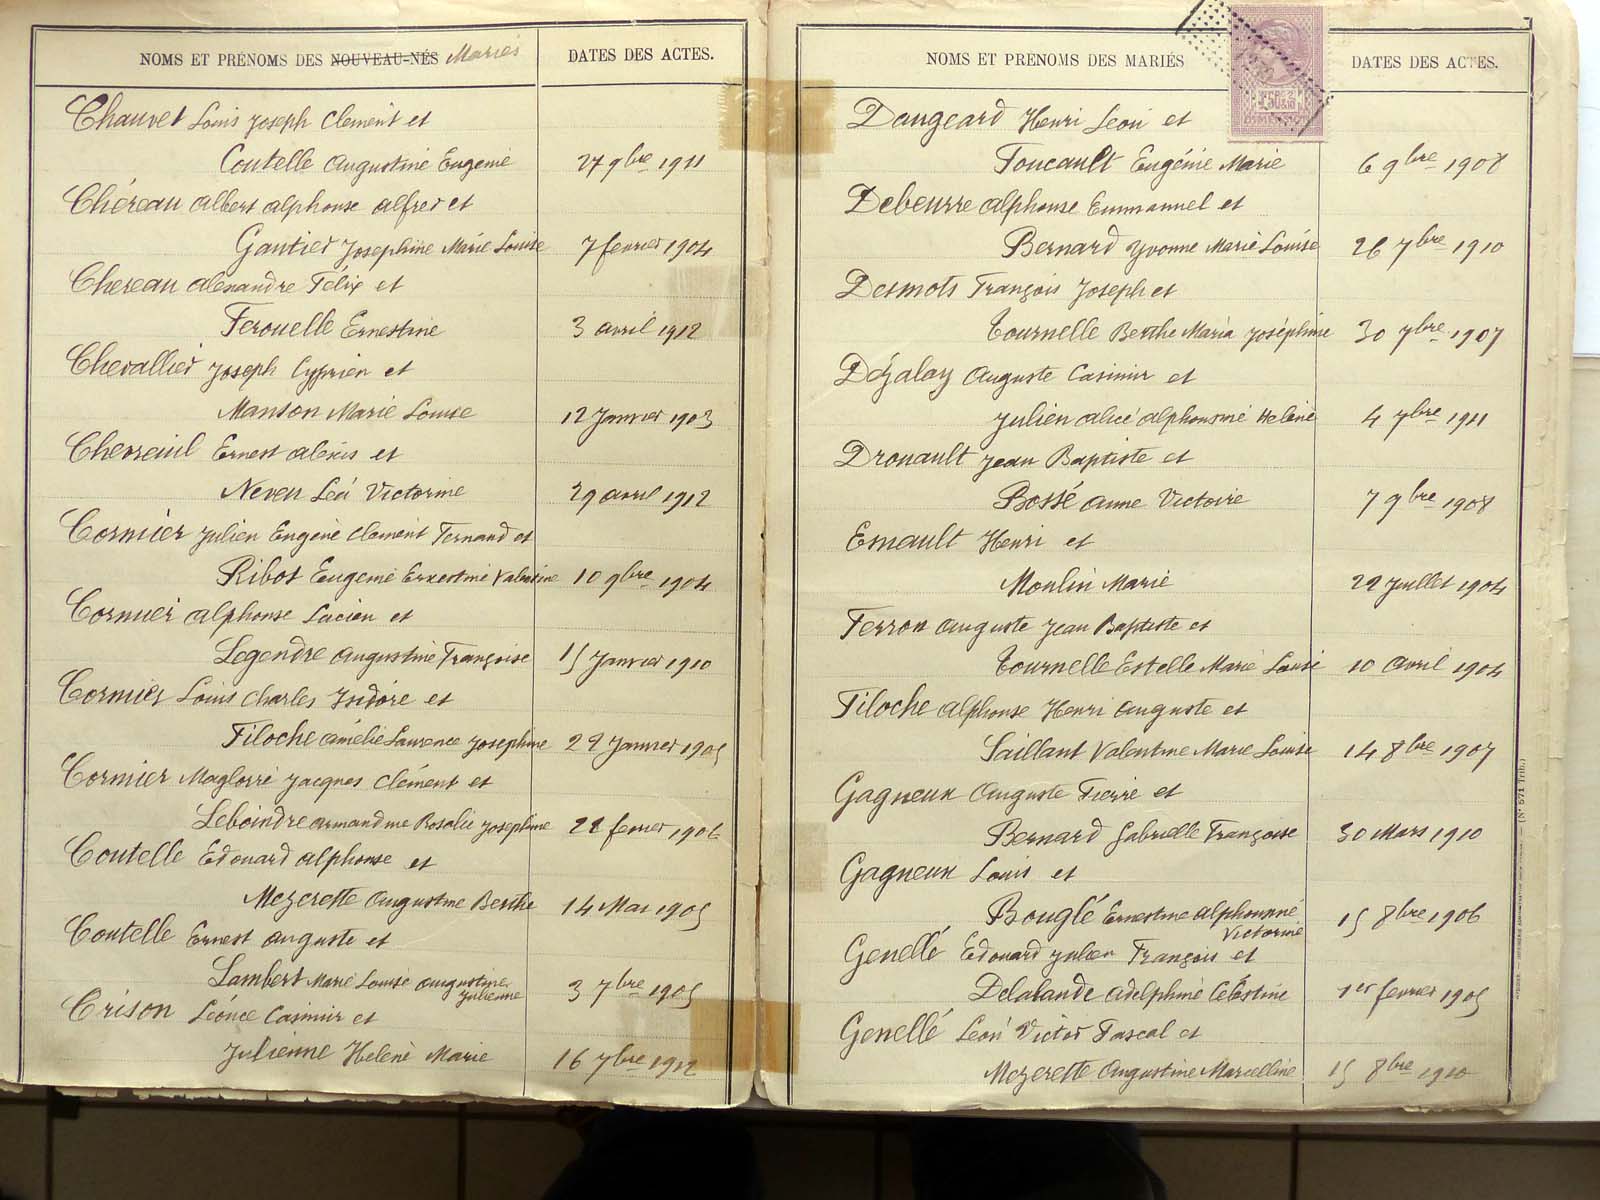 NOMS ET PRÉNOMS DES NOUVEAU-NÉS Mariés DATES DES ACTES.
Chauvet Louis Joseph Clément et
Coutelle Augustine Eugénie 27 9bre 1911
Chéreau Albert Alphonse Alfred et
Gautier Joséphine Marie Louise 7 février 1904
Chereau Alexandre Félix et
Ferouelle Ernestine 3 avril 1912
Chevallier Joseph Cyprien et
Manson Marie Louise 12 Janvier 1903
Chevreuil Ernest Alexis et
Neveu Léa Victorine 29 avril 1912
Cormier Julien Eugène Clément Fernand et
Ribot Eugénie Ernestine Valentine 10 9bre 1904
Cormier Alphonse Lucien et
Legendre Augustine Françoise 15 Janvier 1910
Cormier Louis Charles Isidore et
Filoche Amélie Laurence Joséphine 29 Janvier 1905
Cormier Magloire Jacques Clément et
Leboindre Armandine Rosalie Joséphine février 1906
Coutelle Edouard Alphonse et
Mezerette Augustine Berthe 14 Mai 1905
Coutelle Ernest Auguste et
Lambert Marie Louise Augustine
Julienne 3 7bre 1905
Crison Léonce Casimir et
Julienne Hélène Marie 16 7bre 1912
NOMS ET PRÉNOMS DES MARIÉS DATES DES ACTES.
Dangeard Henri Léon et
Foucault Eugénie Marie 6 9bre 1908
Debeurre Alphonse Emmanuel et
Bernard Yvonne Marie Louise 26 7bre 1910
Desmots François Joseph et
Tournelle Berthe Maria Joséphine 30 7bre 1907
Dézalay Auguste Casimir et
Julien Alice Alphonsine Hélène 4 7bre 1911
Drouault Jean Baptiste et
Bossé Anne Victoire 7 9bre 1908
Esnault Henri et
Moulin Marie Juillet 1904
Ferron Auguste Jean Baptiste et
Tournelle Estelle Marie Louise 10 avril 1904
Filoche Alphonse Henri Auguste et
Saillant Valentine Marie Louise 14 8bre 1907
Gagneux Auguste Pierre et
Bernard Gabrielle Françoise 30 Mars 1910
Gagneux Louis et
Bouglé Ernestine Alphonsine
Victorine 15 8bre 1906
Genellé Edouard Julien François et
Delalande Adelphine Célestine 1er février 1905
Genellé Léon Victor Pascal et
Mezerette Augustine Marcelline 15 8bre 1910